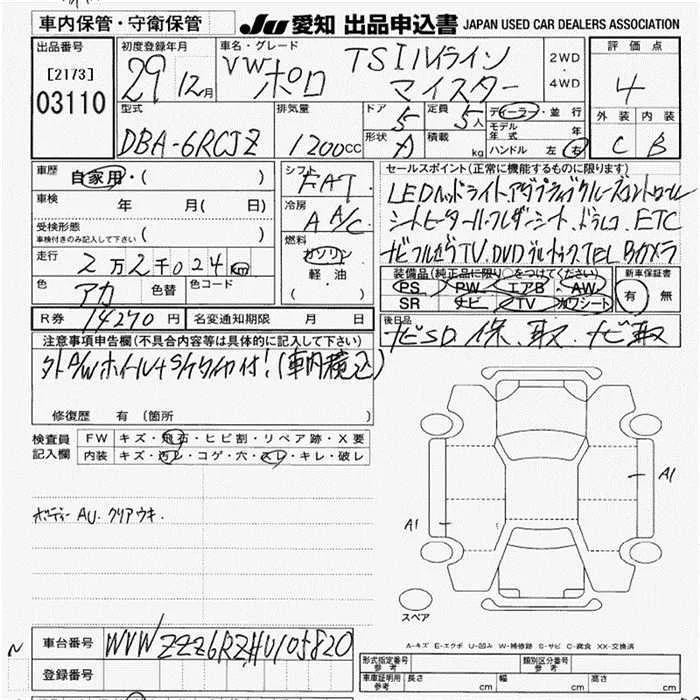 車内保管・守衛保管
JU 愛知 出品申込書 JAPAN USED CAR DEALERS ASSOCIATION
出品番号
[2173]
03110
初度登録年月
29 12月
車名・グレード
VW ポロ TSIハイライン
マイスター
2WD
・
4WD
評価点
4
外装 内装
C B
型式
DBA-6RCJZ
排気量
1200cc
ドア 5
形状 A
定員 5人
積載 kg
ディーラー・並行
モデル年式 年
ハンドル 左・右
車歴 自家用・( )
車検 年 月( 日)
受検形態
車検付きのみ記入して下さい ( )
走行 2万2千024km
色 アカ 色替 色コード
シフト FAT
冷房 AA/C
燃料 ガソリン
軽・油
( )
セールスポイント(正常に機能するものに限ります)
LEDヘッドライト.アダプティブクルーズコントロール
シートヒーター.ドラレコ.ETC
ナビフルセグTV.DVD.ブルートゥース.TEL Bカメラ
装備品(純正品に限り○をつけてください)
PS PW エアB AW
SR ナビ TV カワシート
新車保証書
有・無
R券 14270円 名変通知期限 月 日
後日品
ナビSD.保.取.ナビ取
注意事項申告欄(不具合内容等は具体的に記入して下さい)
(車内積込)
修復歴 有(箇所 )
検査員記入欄
FW キズ・飛石・ヒビ割・リペア跡・X要
内装 キズ・汚レ・コゲ・穴・スレ・キレ・破レ
ボディー AU.クリアウキ.
A1
A1
スペア
A-キズ E-エクボ U-凹み W-補修跡 S-サビ C-腐食 XX-交換済
車台番号 WVWZZZ6RZHU105820
登録番号
形式指定番号 参考
類別区分番号 参考
車庫証明用 参考 長さ cm 幅 cm 高さ cm